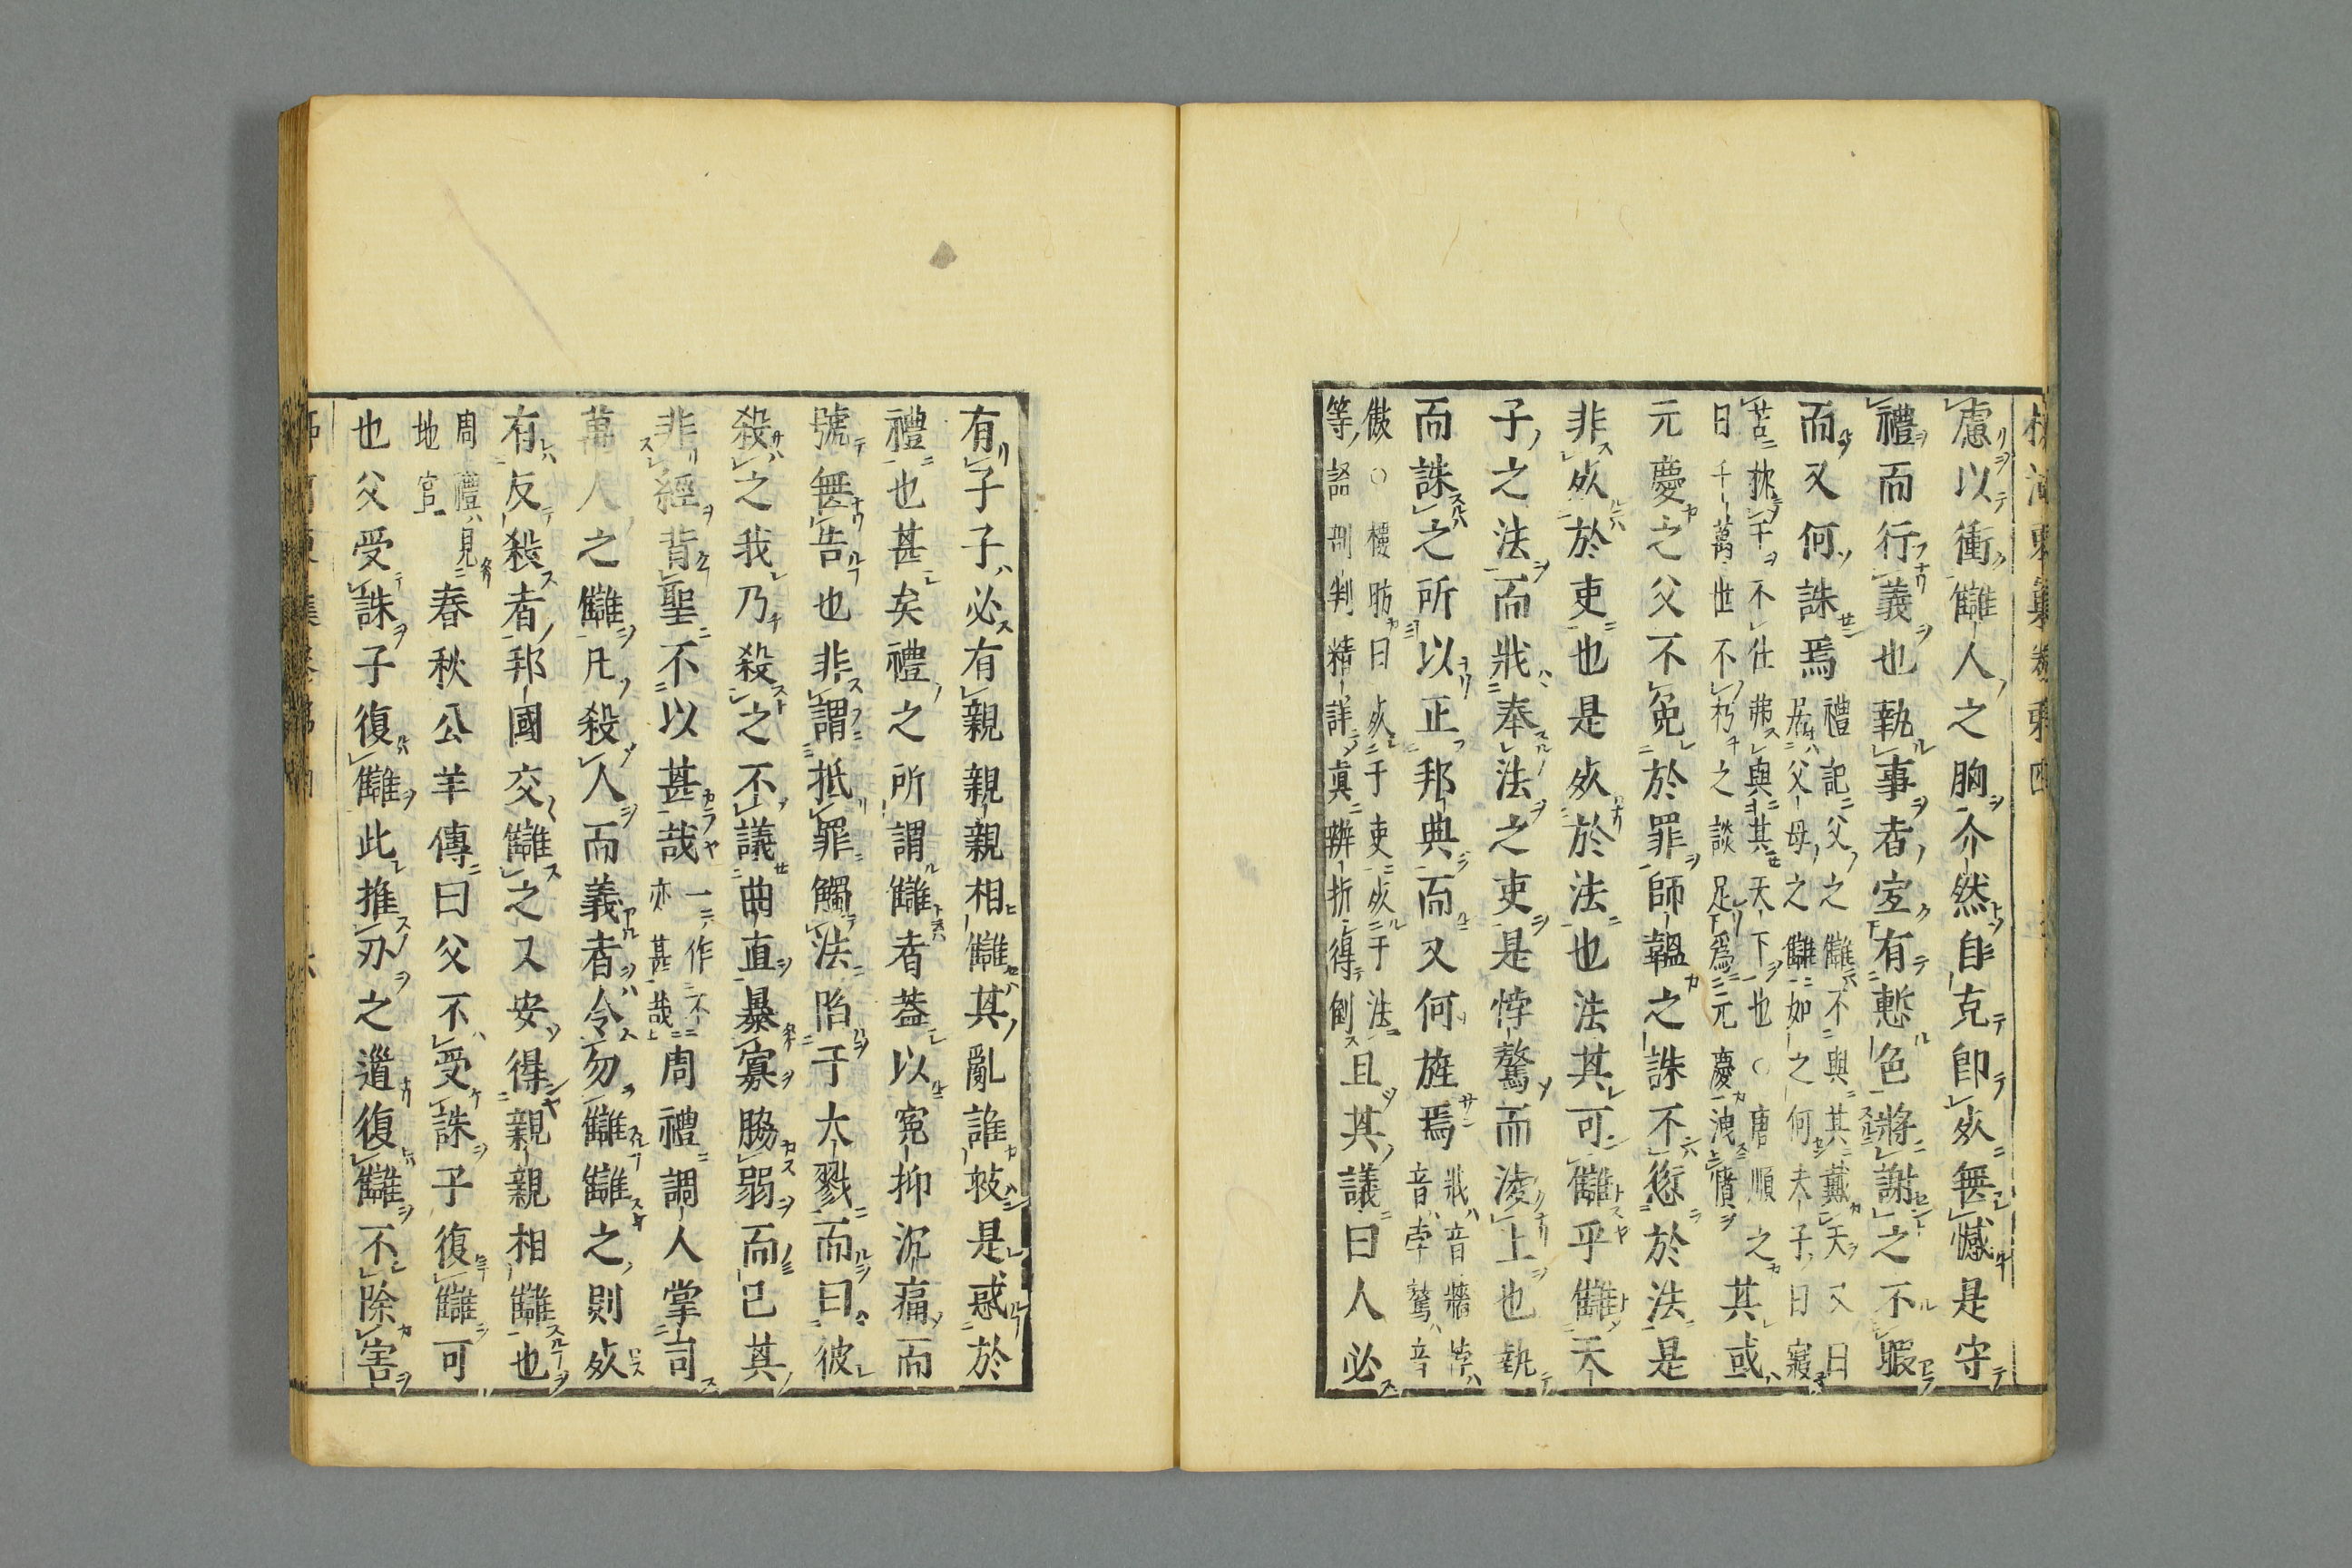 慮以衝讎人之胸介然自克卽死無憾是守
禮而行義也執事者宜有慙色將謝之不暇
而又何誅焉禮記父之讎不與其戴天又曰
居父母之讎如之何夫子曰寢
苫枕干不仕弗與其天下也○唐順之
曰千萬世不朽之談足爲元慶洩憤其或
元慶之父不免於罪師韞之誅不愆於法是
非死於吏也是死於法也法其可讎乎讎天
子之法而戕奉法之吏是悖驁而淩上也執
而誅之所以正邦典而又何旌焉戕音牆悖
音孛驁音
傲○樓昉曰死于吏死于法
等語剖判精詳眞辨折得倒且其議曰人必
有子子必有親親親相讎其亂誰救是惑於
禮也甚矣禮之所謂讎者蓋以冤抑沉痛而
號無告也非謂抵罪觸法陷于大戮而曰彼
殺之我乃殺之不議曲直暴寡脇弱而已其
非經背聖不以甚哉一作不
亦甚哉周禮調人掌司
萬人之讎凡殺人而義者令勿讎讎之則死
有反殺者邦國交讎之又安得親親相讎也
周禮見
地官春秋公羊傳曰父不受誅子復讎可
也父受誅子復讎此推刃之道復讎不除害